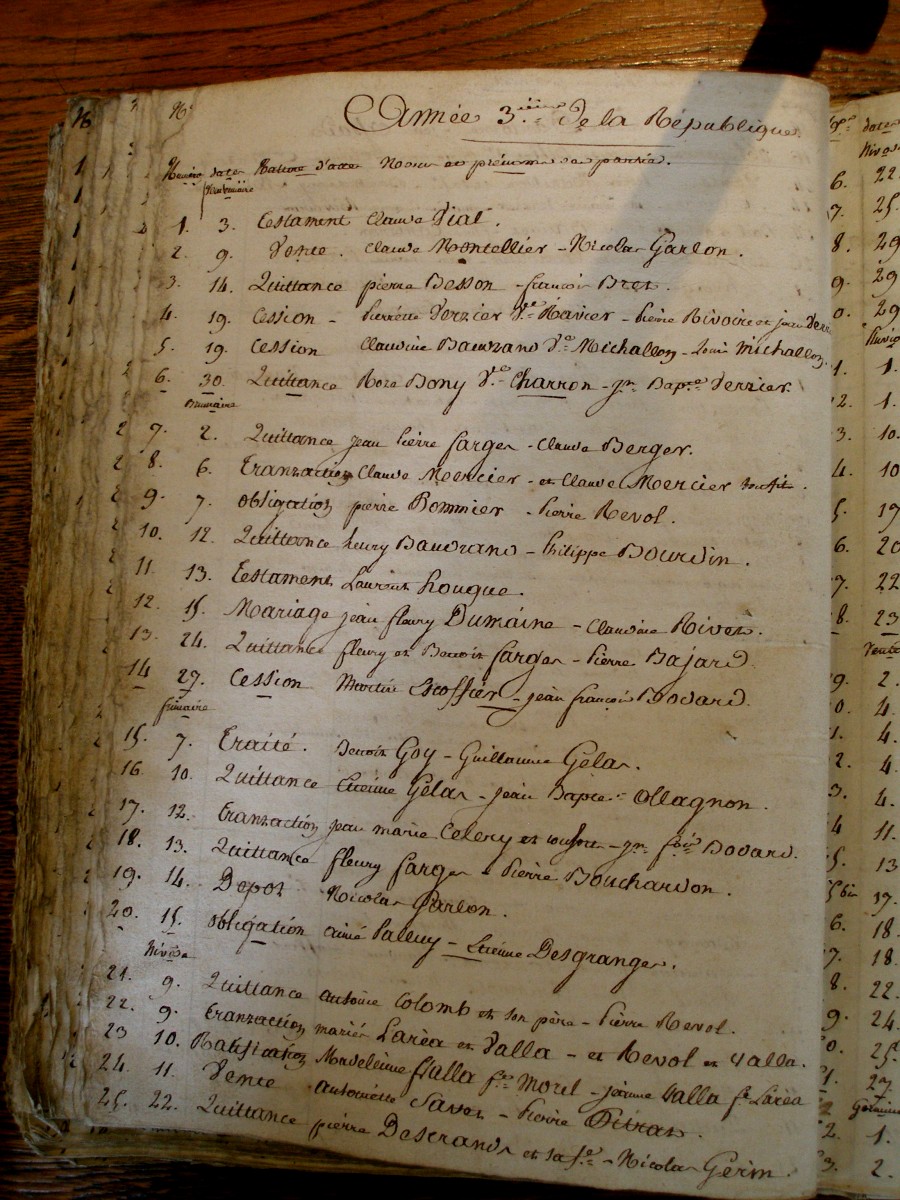 Année 3.ième De la République
Numéro date Nature d'acte Noms et prénoms des parties.
1. 3. Testament Claude Vial.
2. 9. Vente. Claude Montellier - Nicolas Garlon.
3. 14. Quittance pierre Besson - françois Bret.
4. 19. Cession - Pierrette Verzier V.ve Ravier - Pierre Rivoire et jean
5. 19. Cession Claudine Baudrand V.e Michallon - Louis Michallon.
6. 30. Quittance Roze Bony V.e Charron - jn Bap.te Verzier.
Brumaire
7. 2. Quittance jean Pierre farges - Claude Berger.
8. 6. Tranzaction Claude Mercier - et Claude Mercier
9. 7. obligation pierre Bommier - Pierre Revol.
10. 12. Quittance henry Baudrand - Philippe Bourdin.
11. 13. Testament Laurent Hougue.
12. 15. Mariage jean fleury Dumaine - Claudine Rivet.
13. 24. Quittance fleury et Benoit farges - Pierre Bajard.
14 27. Cession Escoffier - jean françois Dodard.
frimaire
15. 7. Traité. Benoit Goy - Guillaume Gelas.
16. 10. Quittance Etienne Gelas - jean Bapte. Ollagnon.
17. 12. Tranzaction jean marie Celery et consort - jn f.çois Dodard.
18. 13. Quittance fleury farges - Pierre Bouchardon.
19. 14. Depot Nicolas Garlon.
20. 15. obligation aimé Palluy - Etienne Desgranges.
Nivôse
21. 9. Quittance antoine Colomb et son père - Pierre Revol.
22. 9. Tranzaction mariés Laréa et Valla - et Revol et Valla.
23 10. Ratification Madeleine Valla f.e Morel - jeanne Valla f.e Laréa
24. 11. Vente antoinette Savot - Pierre Pitrat.
25. 22. Quittance pierre Desrands et sa f.e - Nicolas Gerin.
6. 22
7. 25
8. 29
9. 29
0. 29
1. 1.
2. 1.
3. 10.
4. 10
5. 19
6. 20
7. 22
8. 23
9. 2.
0. 4.
1. 4.
2. 4
3. 4.
4 11.
5. 13
5 bis 17.
6. 18.
7. 18.
8. 22.
9. 24.
0. 25.
1. 27
2. 1.
3. 2.